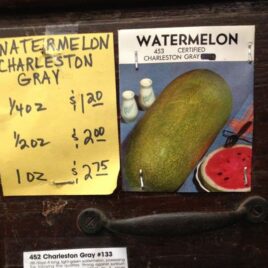 WATERMELON
CHARLESTON
GRAY
1/4 OZ $1.20
1/2 OZ $2.00
1 OZ $2.75
WATERMELON
453 CERTIFIED
CHARLESTON GRAY
452 Charleston Gray #133